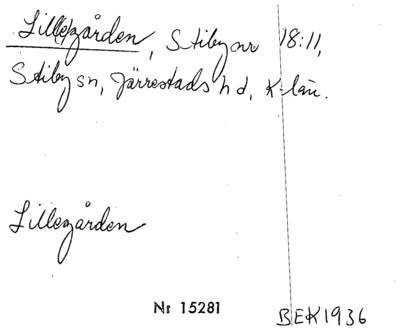 Lill(e)gården, Stiby nr 18:11,
Stiby sn, Järrestads hd, K-län.
Lillegården
Nr 15281
BEK1936